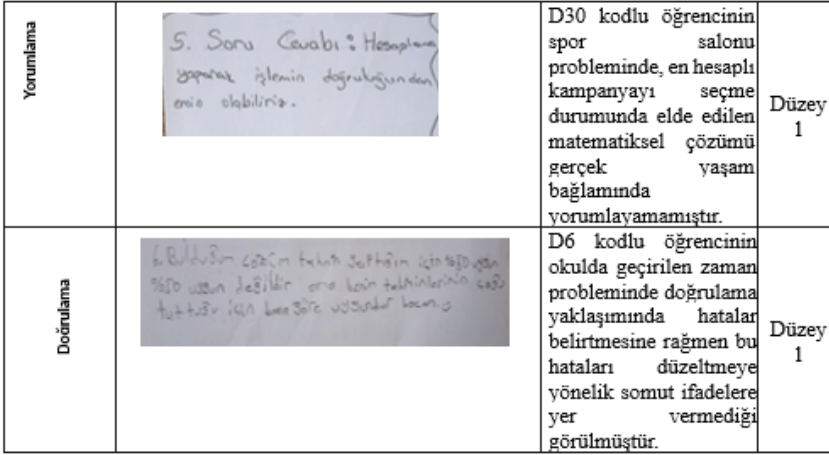 Yorumlama
5. Soru Cevabı: Hesaplama
yaparak işlemin doğruluğundan
emin olabiliriz.
D30 kodlu öğrencinin
spor salonu
probleminde, en hesaplı
kampanyayı seçme
durumunda elde edilen
matematiksel çözümü
gerçek yaşam
bağlamında
yorumlayamamıştır.
Düzey
1
Doğrulama
6. Bulduğum çözüm tahmin yaptığım için %50 uygun
%50 uygun değildir ama benim tahminlerimin çoğu
tuttuğu için bana göre uygundur hocam
D6 kodlu öğrencinin
okulda geçirilen zaman
probleminde doğrulama
yaklaşımında hatalar
belirtmesine rağmen bu
hataları düzeltmeye
yönelik somut ifadelere
yer vermediği
görülmüştür.
Düzey
1